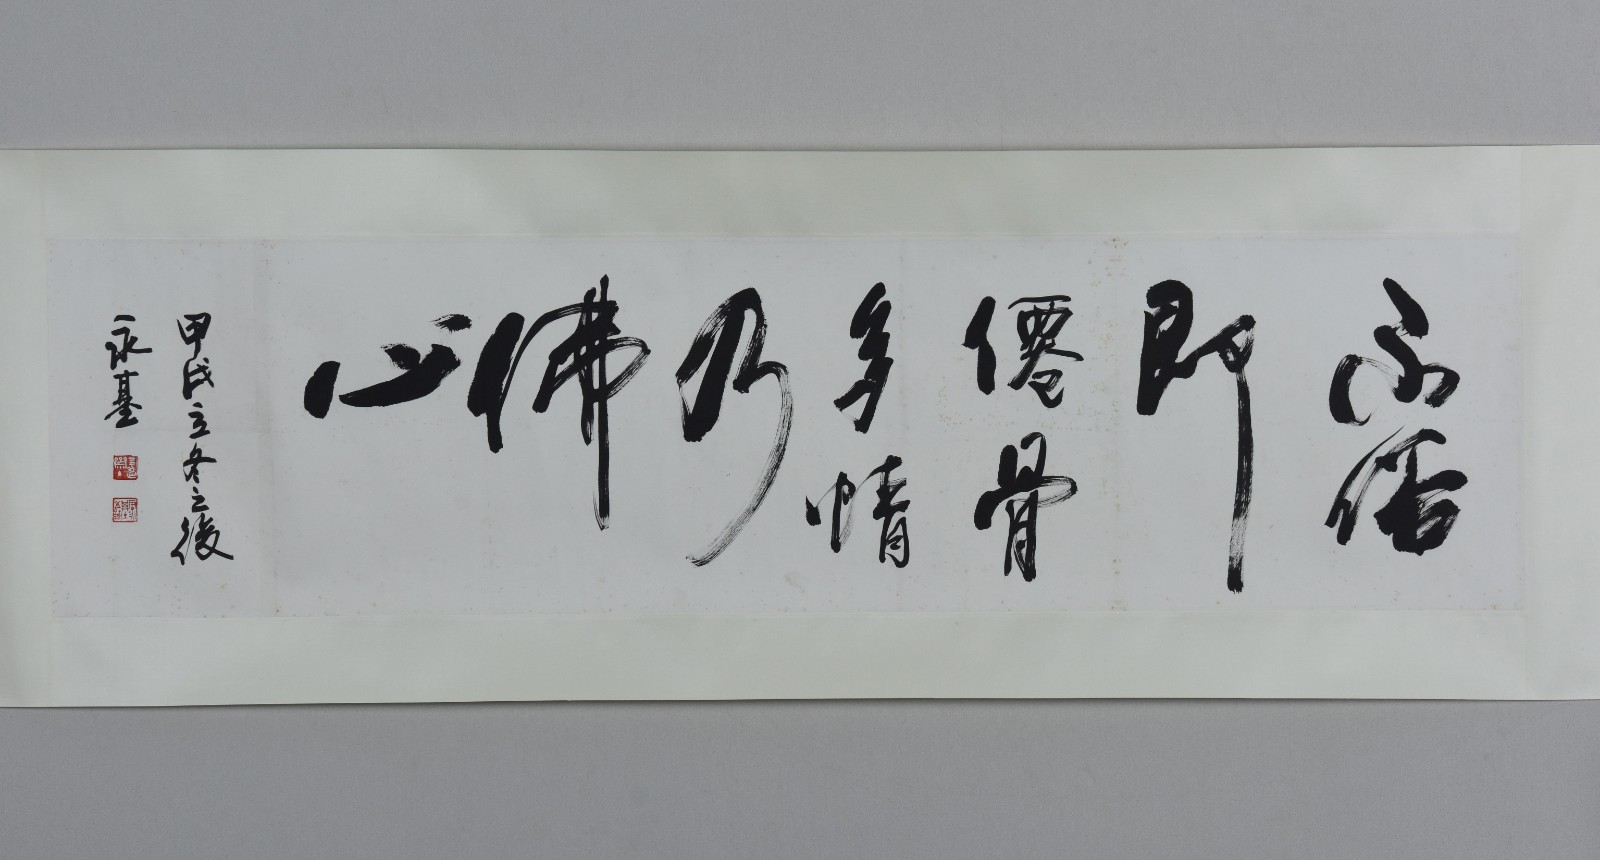 不俗
即
僊骨
多情
乃
佛
心
甲戌立冬之後
永基